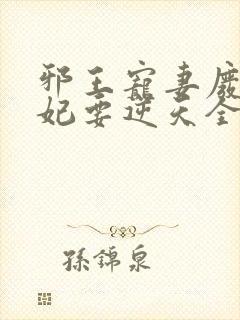 邪王寵妻廢
妃要逆天全
孫錦泉